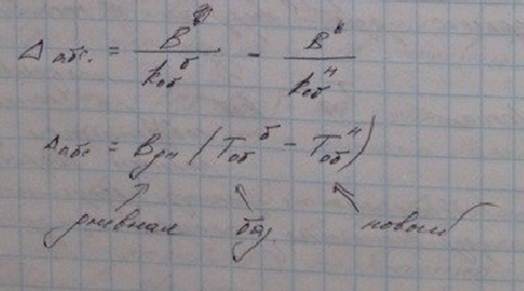 Δ абс. = В^б / k_об^б - В^б / k_об^н
Δ абс = В_дн (Т_об^б - Т_об^н)
дневная баз. новый